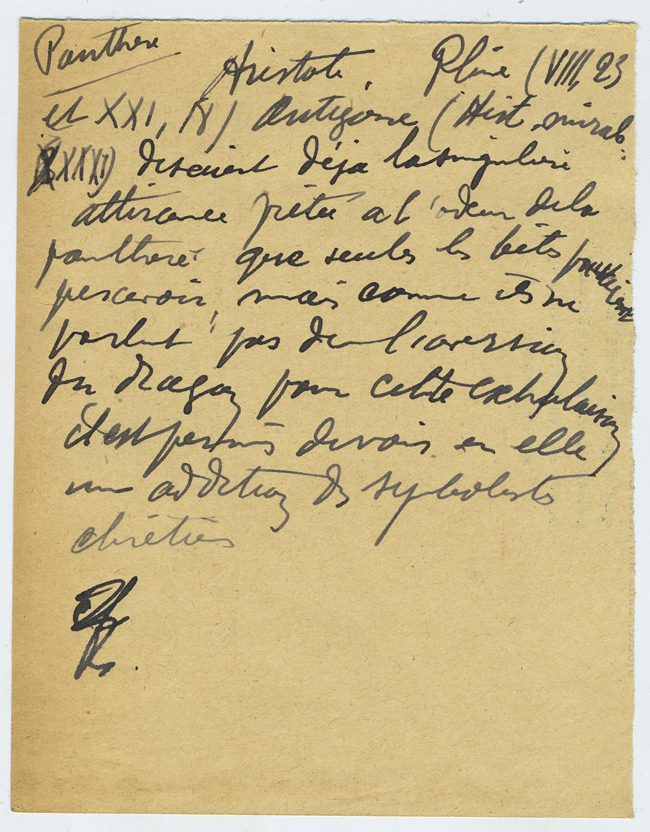 Panthere
Aristote, Pline (VIII, 23
et XXI, IV) Antigone (Hist. mirab.
XXXI) disaient déja la singulière
attirance prêtée a l'odeur de la
panthere que seules les bêtes pouvaient
percevoir, mais comme ils ne
parlent pas de l'aversion
du dragon pour cette exhalaison
il est permis de voir en elle
une addition des symbolistes
chrétiens